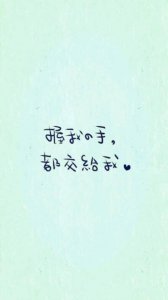 握我の手,
都交給我♥